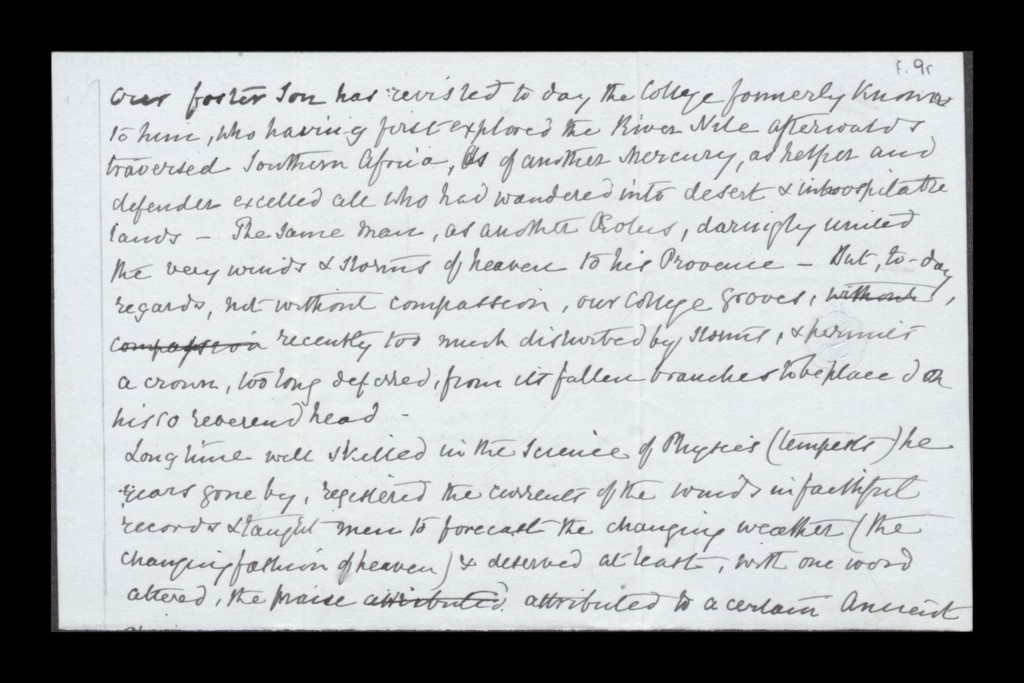 f. 9r
Our foster Son has revisited to day the College formerly known
to him, who having first explored the River Nile afterwards
traversed Southern Africa, As of another Mercury, as helper and
defender excelled all who had wandered into desert & inhospitable
lands – The same man, as another Æolus, daringly united
the very winds & storms of heaven to his Provence – But, to-day,
regards, not without compassion, our College groves, without
compassion recently too much disturbed by storms, & permits
a crown, too long deferred, from its fallen branches to be placed on
his so reverend head –
Long time well skilled in the Science of Physics (tempests) he
years gone by, registered the currents of the winds in faithful
records & taught men to forecast the changing weather (the
changing fashion of heaven) & deserved at least, with one word
altered, the praise attributed attributed to a certain Ancient